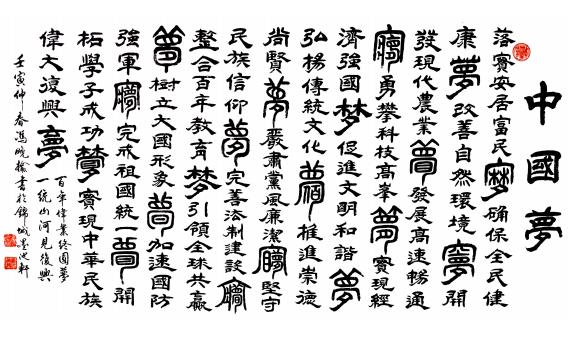 中國夢
落實安居富民夢確保全民健
康夢改善自然環境夢開
發現代農業夢發展高速暢通
夢勇攀科技高峯夢實現經
濟強國梦促進文明和諧夢
弘揚傳統文化夢推進崇德
尚賢夢嚴肅黨風廉潔夢堅守
民族信仰夢完善法制建設夢
整合百年教育梦引領全球共贏
夢樹立大國形象夢加速國防
強軍夢完成祖國統一夢開
拓學子成功夢實現中華民族
偉大復興夢
百年偉業終圓夢
一統山河見復興
壬寅仲春馮曉書於錦城墨池軒